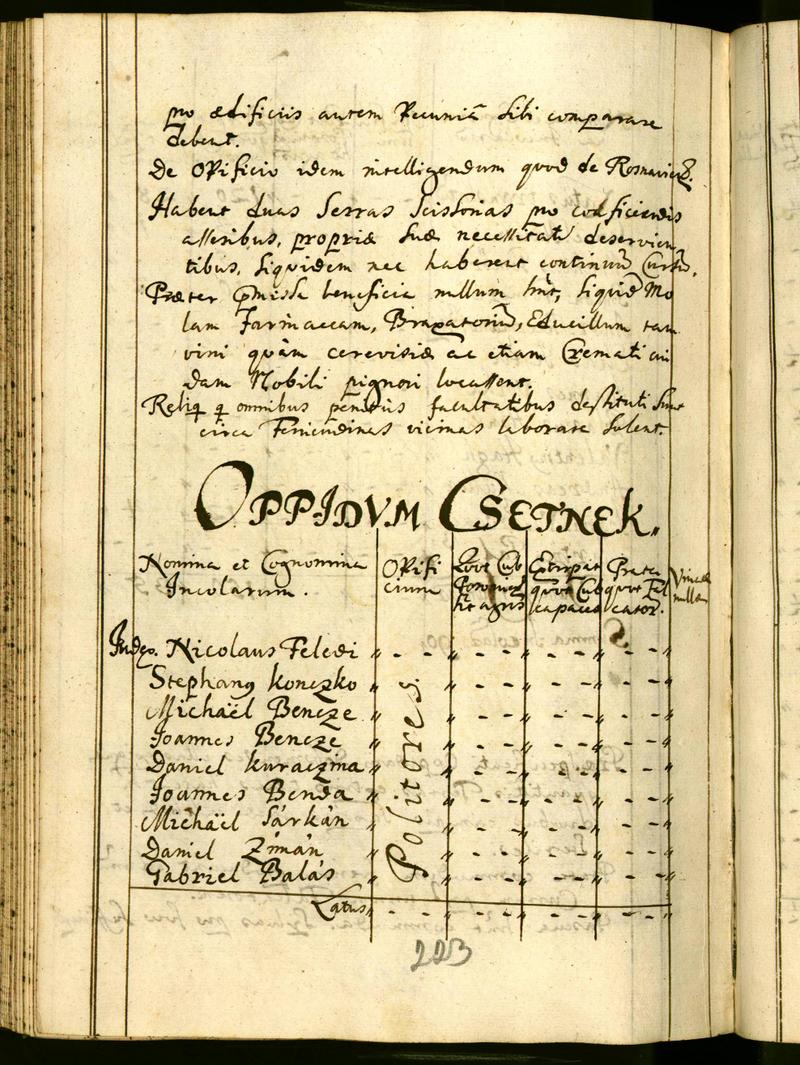 pro ædificiis autem Pecuniã sibi comparare
debent.
De Opificio idem intelligendum quod de Rosnavien
Habent duas Serras Scissorias pro conficiendis
asseribus, propriæ suæ necessitati deservien
tibus, siquidem nec haberent continuũ Cursũ.
Præter p̃missa beneficia nullum hñt, siquidẽ Mo
lam Farinaceam, Braxatoriũ, Educillum tam
vini quàm cerevisiæ ac etiam Cremati cui
dam Nobili pignori locassent.
Reliq omnibus penitus facultatibus destituti sunt
circa Ferricudinas vicinas laborare solent.
OPPIDVM CSETNEK.
Nomina et Cognomina Opifi Quot Cub Extirpat Prata Vineæ
Incolarum. cium quot Cub quot Fal nullæ
agris capaces cator.
Judex. Nicolaus Feledi " - - " - - " - - " - - "
Stephang Konczko " " - - " - - " - - "
Michaël Bencze " " - - " - - " - - "
Joannes Bencze " " - - " - - " - - "
Daniel Kuraczina " " - - " - - " - - "
Joannes Benda " " - - " - - " - - "
Michaël Sárkán " " - - " - - " - - "
Daniel Zimán " " - - " - - " - - "
Gabriel Balás " " - - " - - " - - "
Politores.
Latus " - - " - - " - - " - - "
223